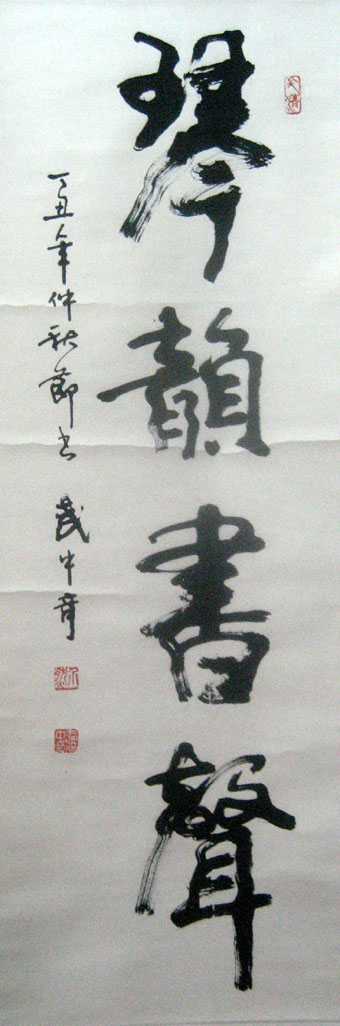 琴韻書聲
丁丑年仲秋節書 武中奇